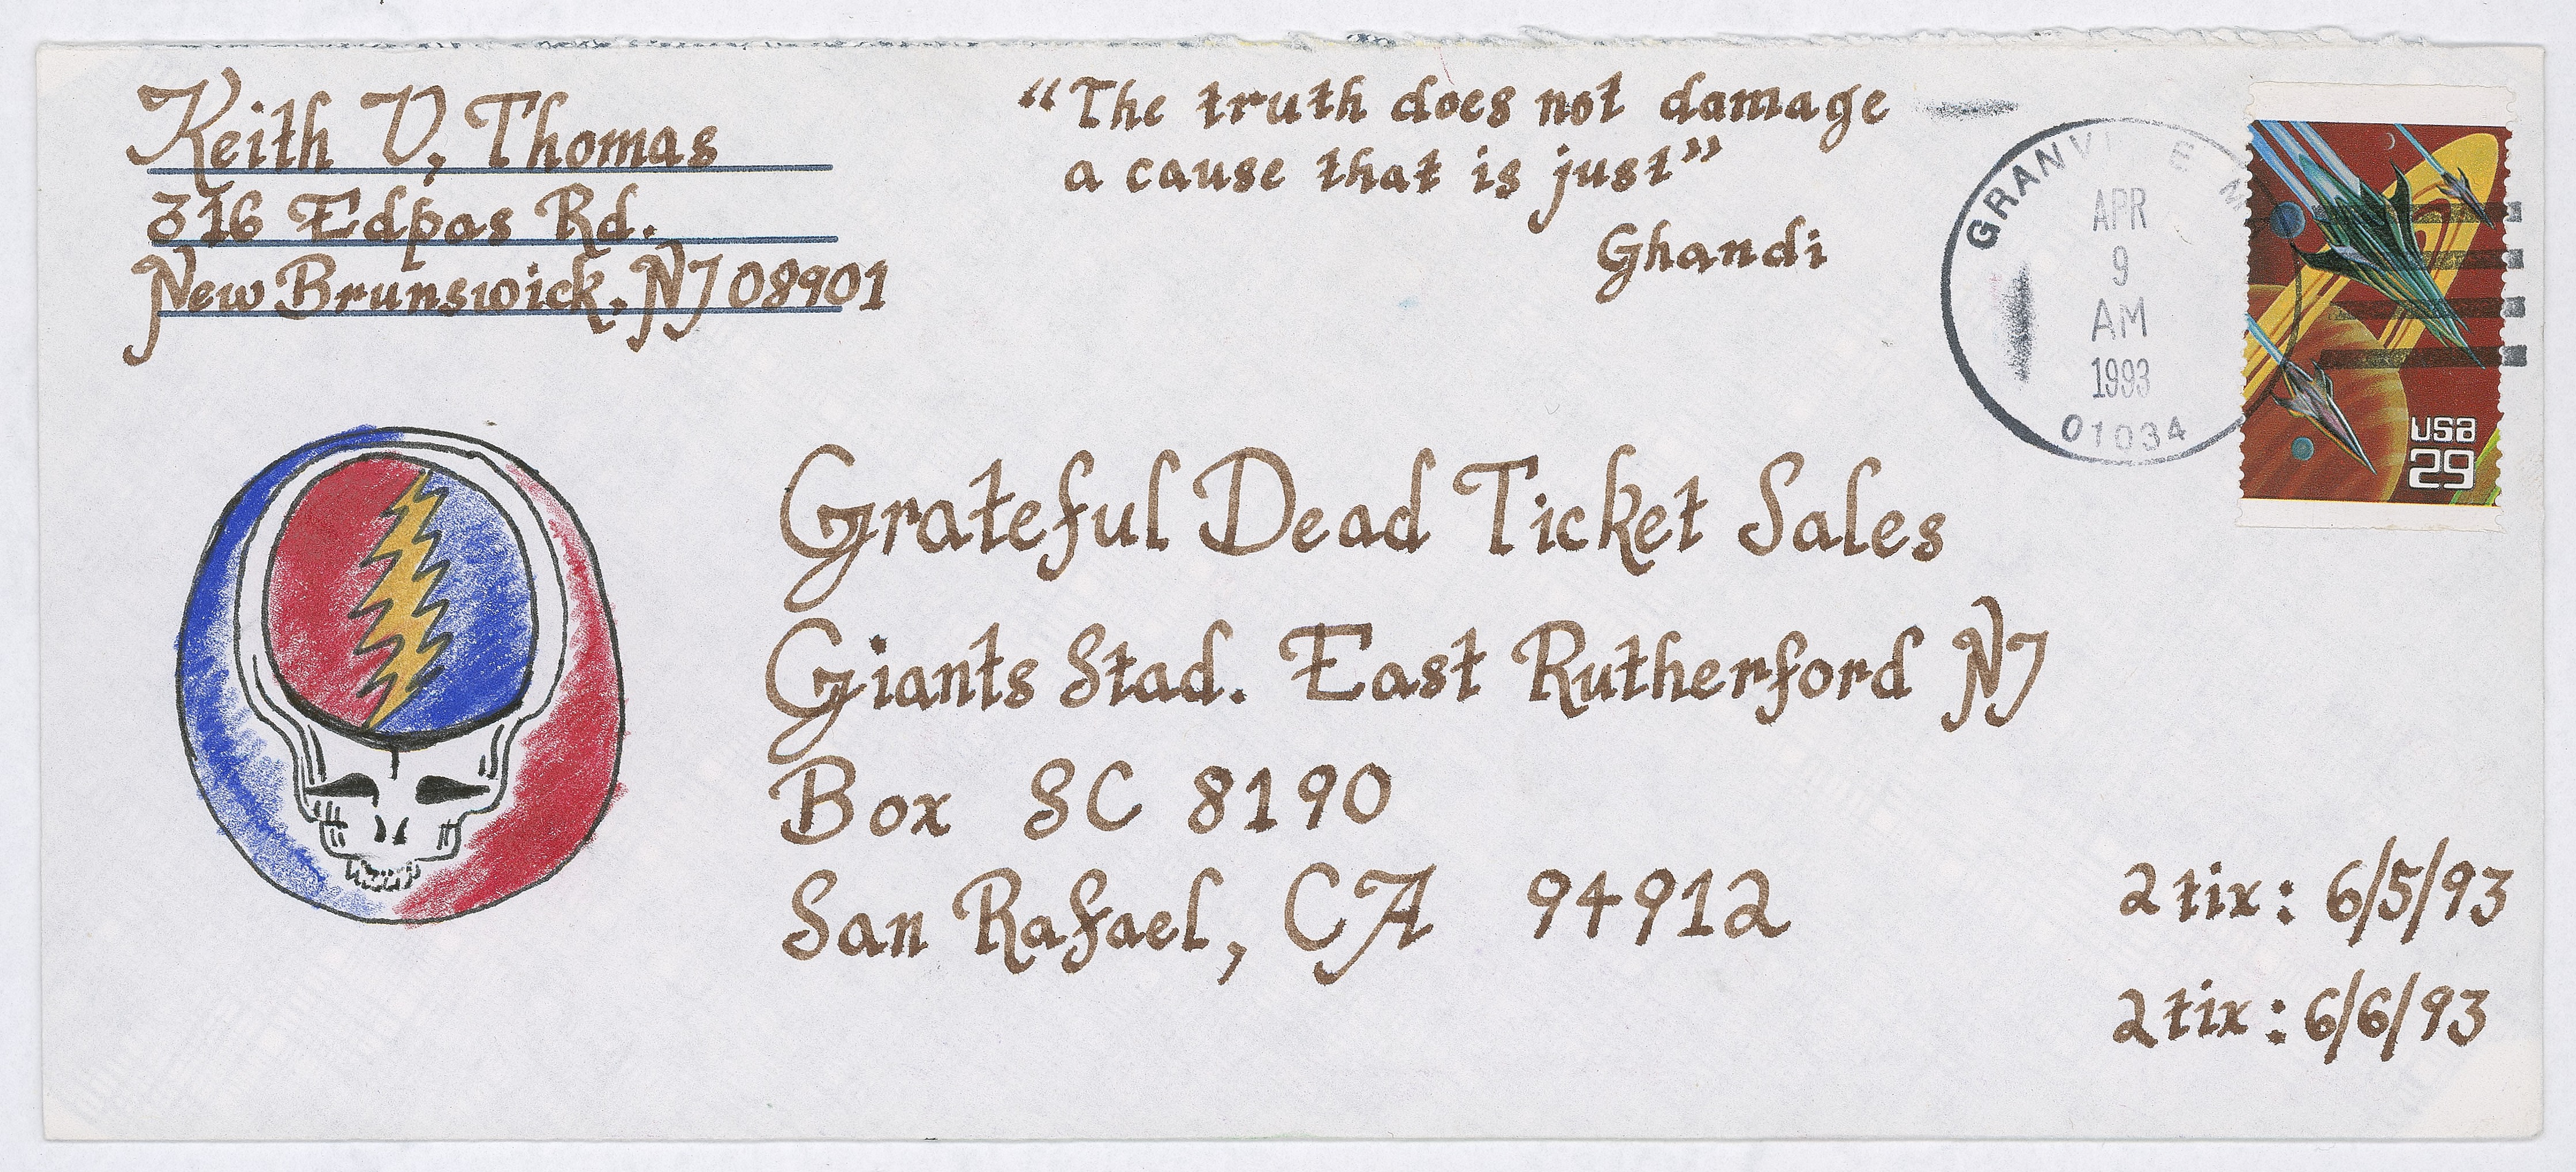 Keith V. Thomas
316 Edpas Rd.
New Brunswick, NJ 08901
“The truth does not damage
a cause that is just”
Ghandi
APR
9
AM
1993
01034
USA
29
Grateful Dead Ticket Sales
Giants Stad. East Rutherford NJ
Box SC 8190
San Rafael, CA 94912
2 tix: 6/5/93
2 tix: 6/6/93